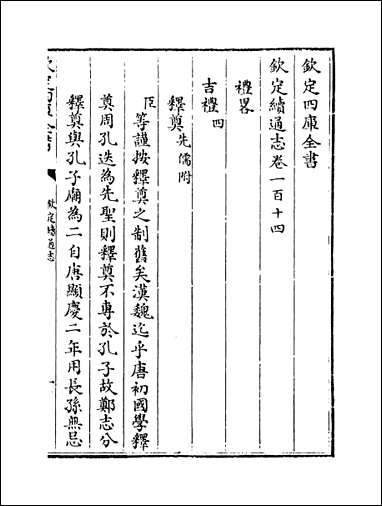 欽定四庫全書
欽定續通志卷一百十四
禮畧
吉禮四
釋奠先儒附
臣等謹按釋奠之制舊矣漢魏迄乎唐初國學釋
奠周孔迭為先聖則釋奠不専於孔子故鄭志分
釋奠與孔子廟為二自唐顯慶二年用長孫無忌
欽定續通志